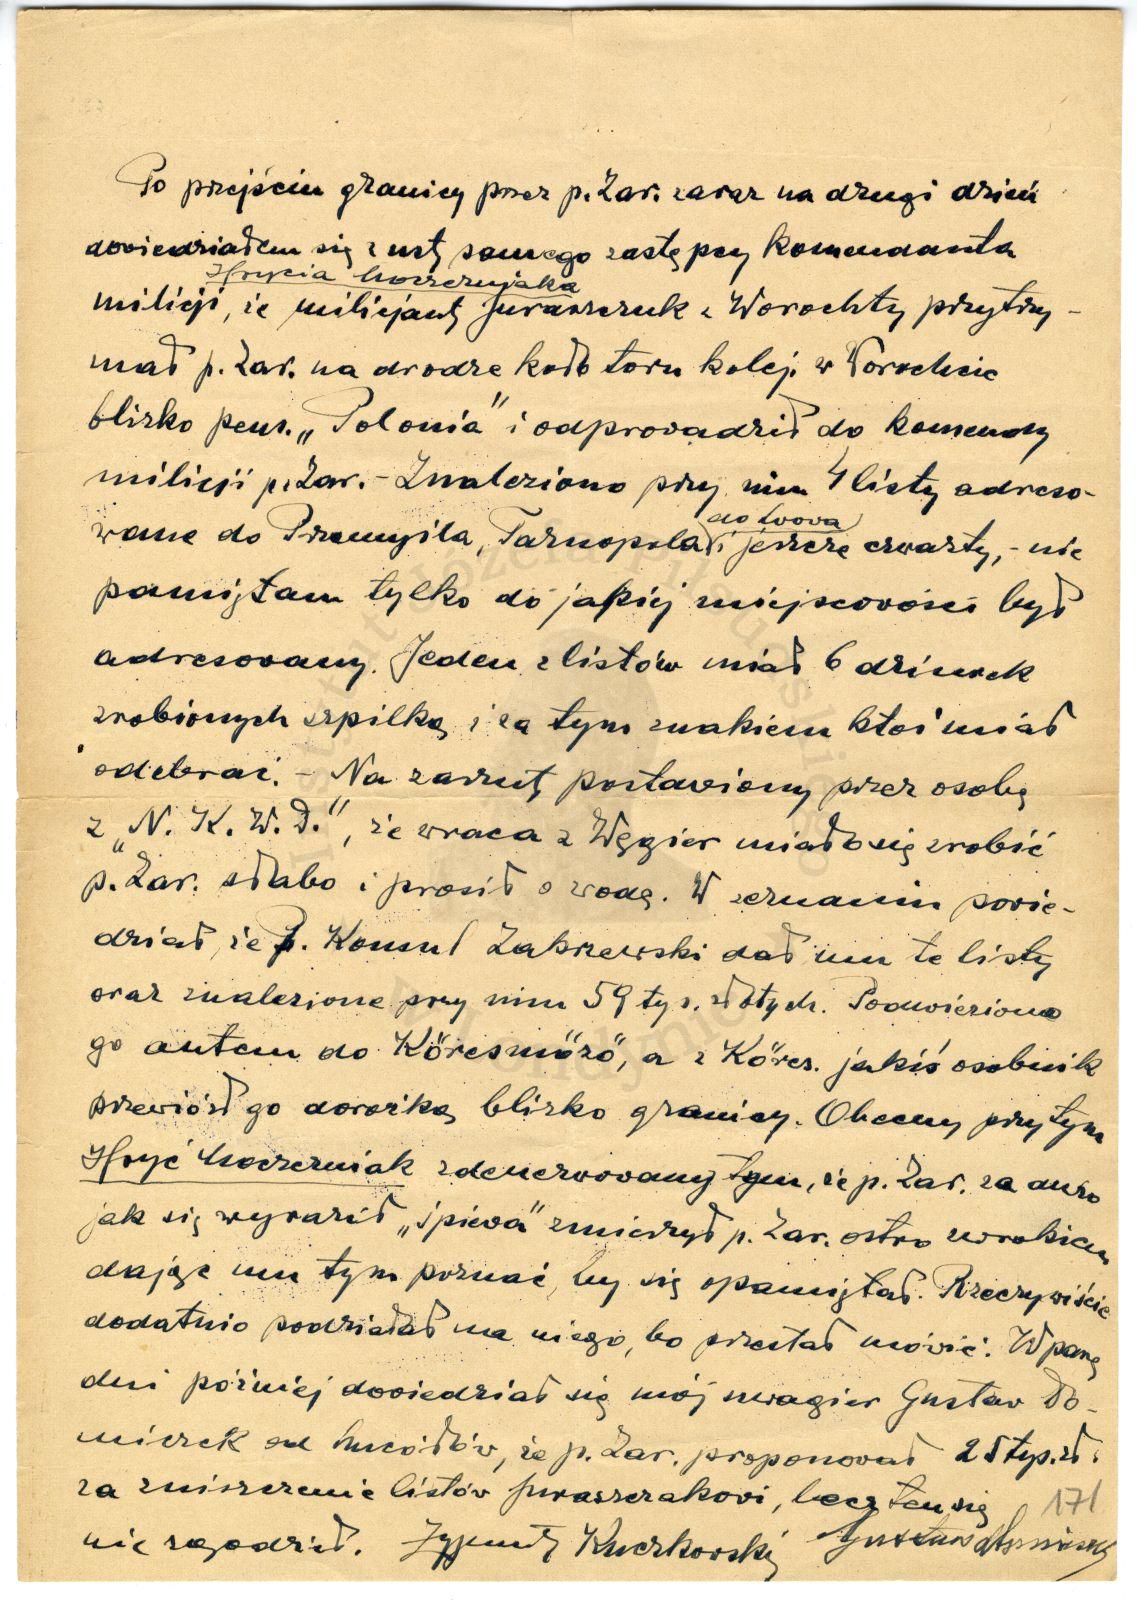 Po przejściu granicy przez p. Żar. zaraz na drugi dzień
dowiedziałem się z ust samego zastępcy komendanta
Hrycia Moczerniaka
milicji, że milicjant Juraszczuk z Worochty przytrzy-
mał p. Żar. na drodze koło toru kolej. w Worochcie
blizko pens. „Polonia" i odprowadził do komendy
milicji p. Żar. – Znaleziono przy nim 4 listy adreso-
do Lwowa
wane do Przemyśla, Tarnopola i jeszcze czwarty, – nie
pamiętam tylko do jakiej miejscowości był
adresowany. Jeden z listów miał 6 dziurek
zrobionych szpilką i za tym znakiem ktoś miał
odebrać. – Na zarzut postawiony przez osobę
z „N. K. W. D.", że wraca z Węgier miało się zrobić
p. Żar. słabo i prosił o wodę. W zeznaniu powie-
dział, że P. Konsul Zakrzewski dał mu te listy
oraz znalezione przy nim 59 tys. złotych. Podwieziono
go autem do Körösmözö, a z Körös. jakiś osobnik
przewiózł go dorożką blizko granicy. Obecny przy tym
Hryć Moczerniak zdenerwowany tym, że p. Żar. za dużo
jak się wyraził „śpiewa" zmierzył p. Żar. ostro wzrokiem
dając mu tym poznać, by się opamiętał. Rzeczywiście
dodatnio podziałał na niego, bo przestał mówić. W parę
dni później dowiedział się mój szwagier Gustaw Ło-
miczek od hucółów, że p. Żar. proponował 2 tys. zł.
za zniszczenie listów Juraszczakowi, lecz ten się
nie zgodził. Zygmunt Kuczkowski Gustaw
171